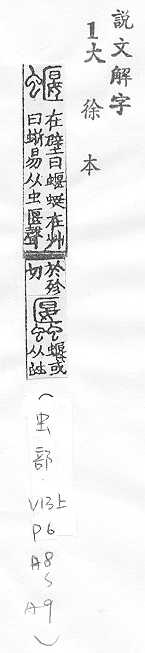 説文解字
1大徐本
蝘
在壁曰蝘蜓在艸
曰蜥易从虫匽聲
於殄
切
蝘或
从䖵
(虫部.
V13上
P6
A8
~
A9)